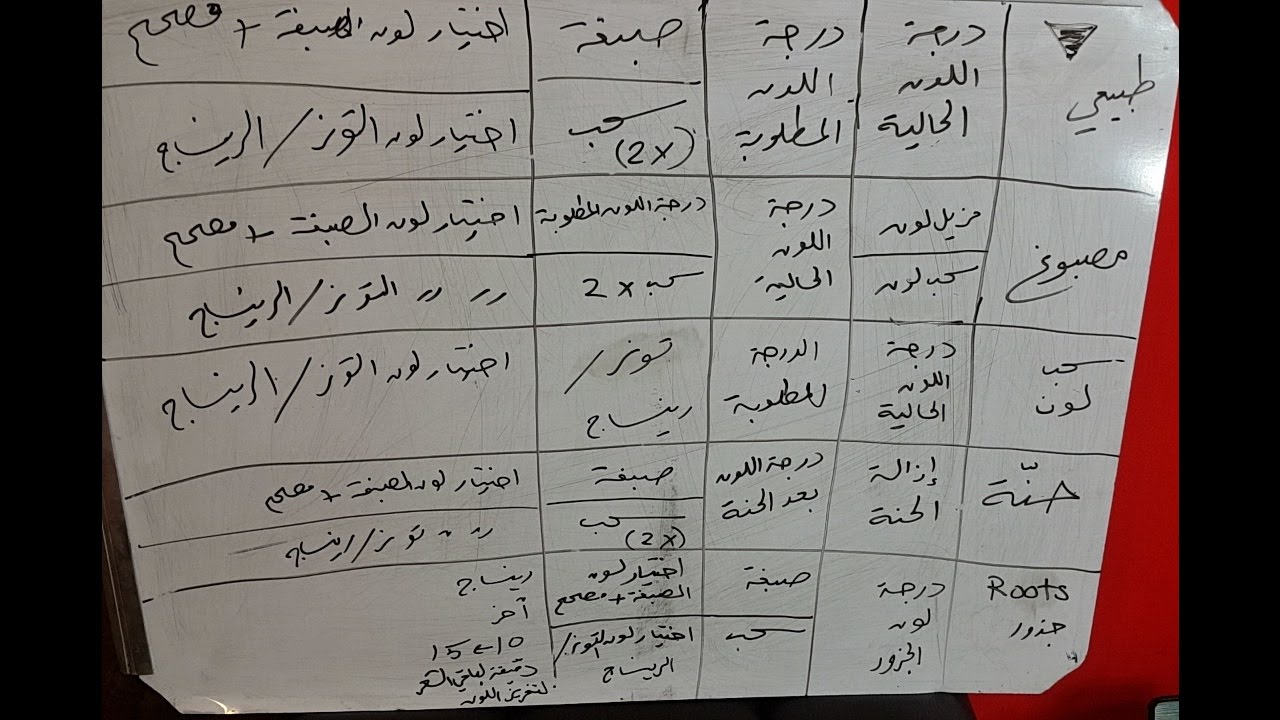 طبيعي
درجة
اللون
الحالية
درجة
اللون
المطلوبة
صبغة
اختيار لون الصبغة + مصحح
سحب
(2x)
اختيار لون التونر / الريناج
مصبوغ
مزيل لون
سحب لون
درجة
اللون
الحالية
درجة اللون المطلوبة
اختيار لون الصبغة + مصحح
سحب 2x
〃 〃 التونر / الريناج
سحب
لون
درجة
اللون
الحالية
الدرجة
المطلوبة
تونر /
ريناج
اختيار لون التونر / الريناج
حنّة
إزالة
الحنة
درجة اللون
بعد الحنة
صبغة
اختيار لون الصبغة + مصحح
سحب
(2x)
〃 〃 تونر / ريناج
Roots
جذور
درجة
لون
الجزور
صبغة
اختيار لون
الصبغة + مصحح
سحب
اختيار لون التونر /
الريناج
ريناج
آخر
10 ← 15
دقيقة لباقي الشعر
لتفريز اللون